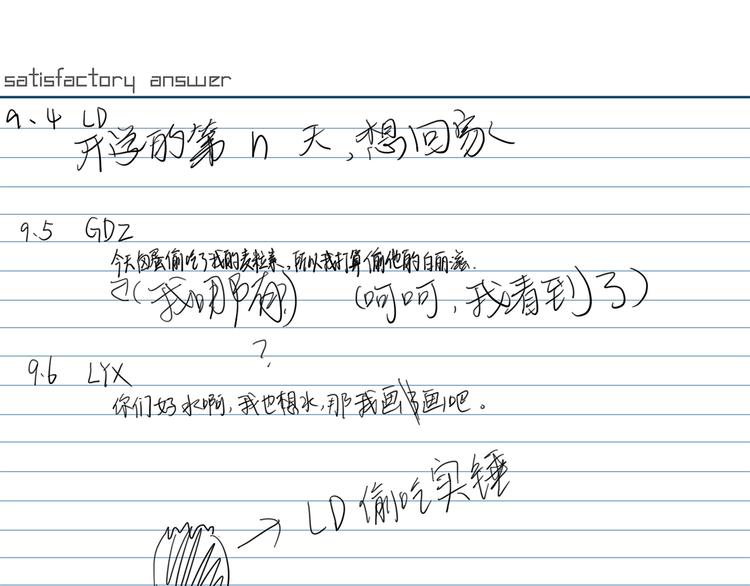 satisfactory answer
9.4 LD
开学的第 n 天，想回家
9.5 GDZ
今天卤蛋偷吃了我的麦粒素，所以我打算偷他的白丽滋.
（我哪有） （呵呵，我看到了）
？
9.6 LYX
你们好水啊，我也想水，那我画个画吧。
→ LD 偷吃实锤